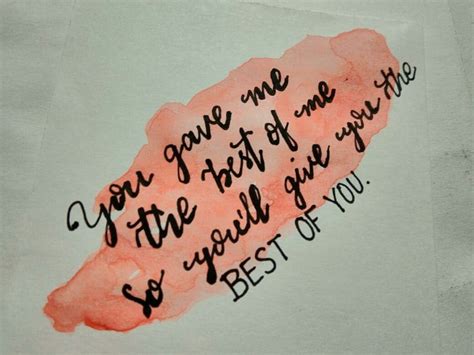 You gave me
the best of me
So you'll give you the
BEST OF YOU.